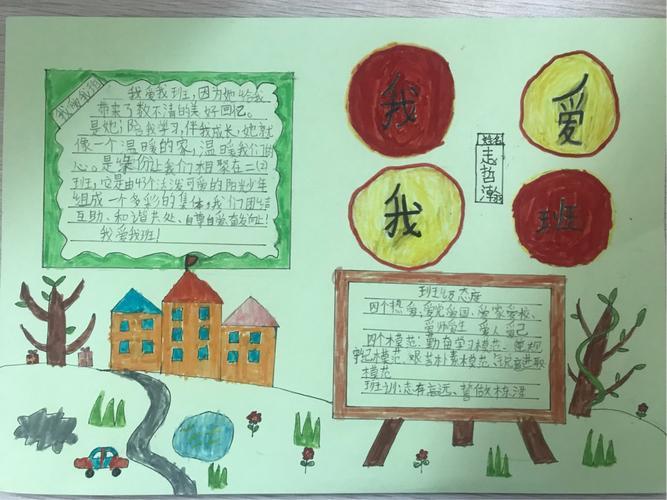 我爱我班
我爱我班,因为她给我
带来了数不清的美好回忆。
是她陪我学习,伴我成长,她就
像一个温暖的家,温暖我们的
心。是缘份让我们相聚在二(2)
班,它是由43个活泼可爱的阳光少年
组成一个多彩的集体,我们团结
互助、和谐共处、自尊自爱奋发向上!
我爱我班!
我
爱
我
班
姓名
志哲瀚
班级态度
四个热爱:爱党爱国、爱家爱校、
爱师爱生 爱人爱己
四个模范:勤奋学习模范、尊规
守纪模范、艰苦朴素模范、锐意进取
模范
班训:志存高远、誓做栋泽